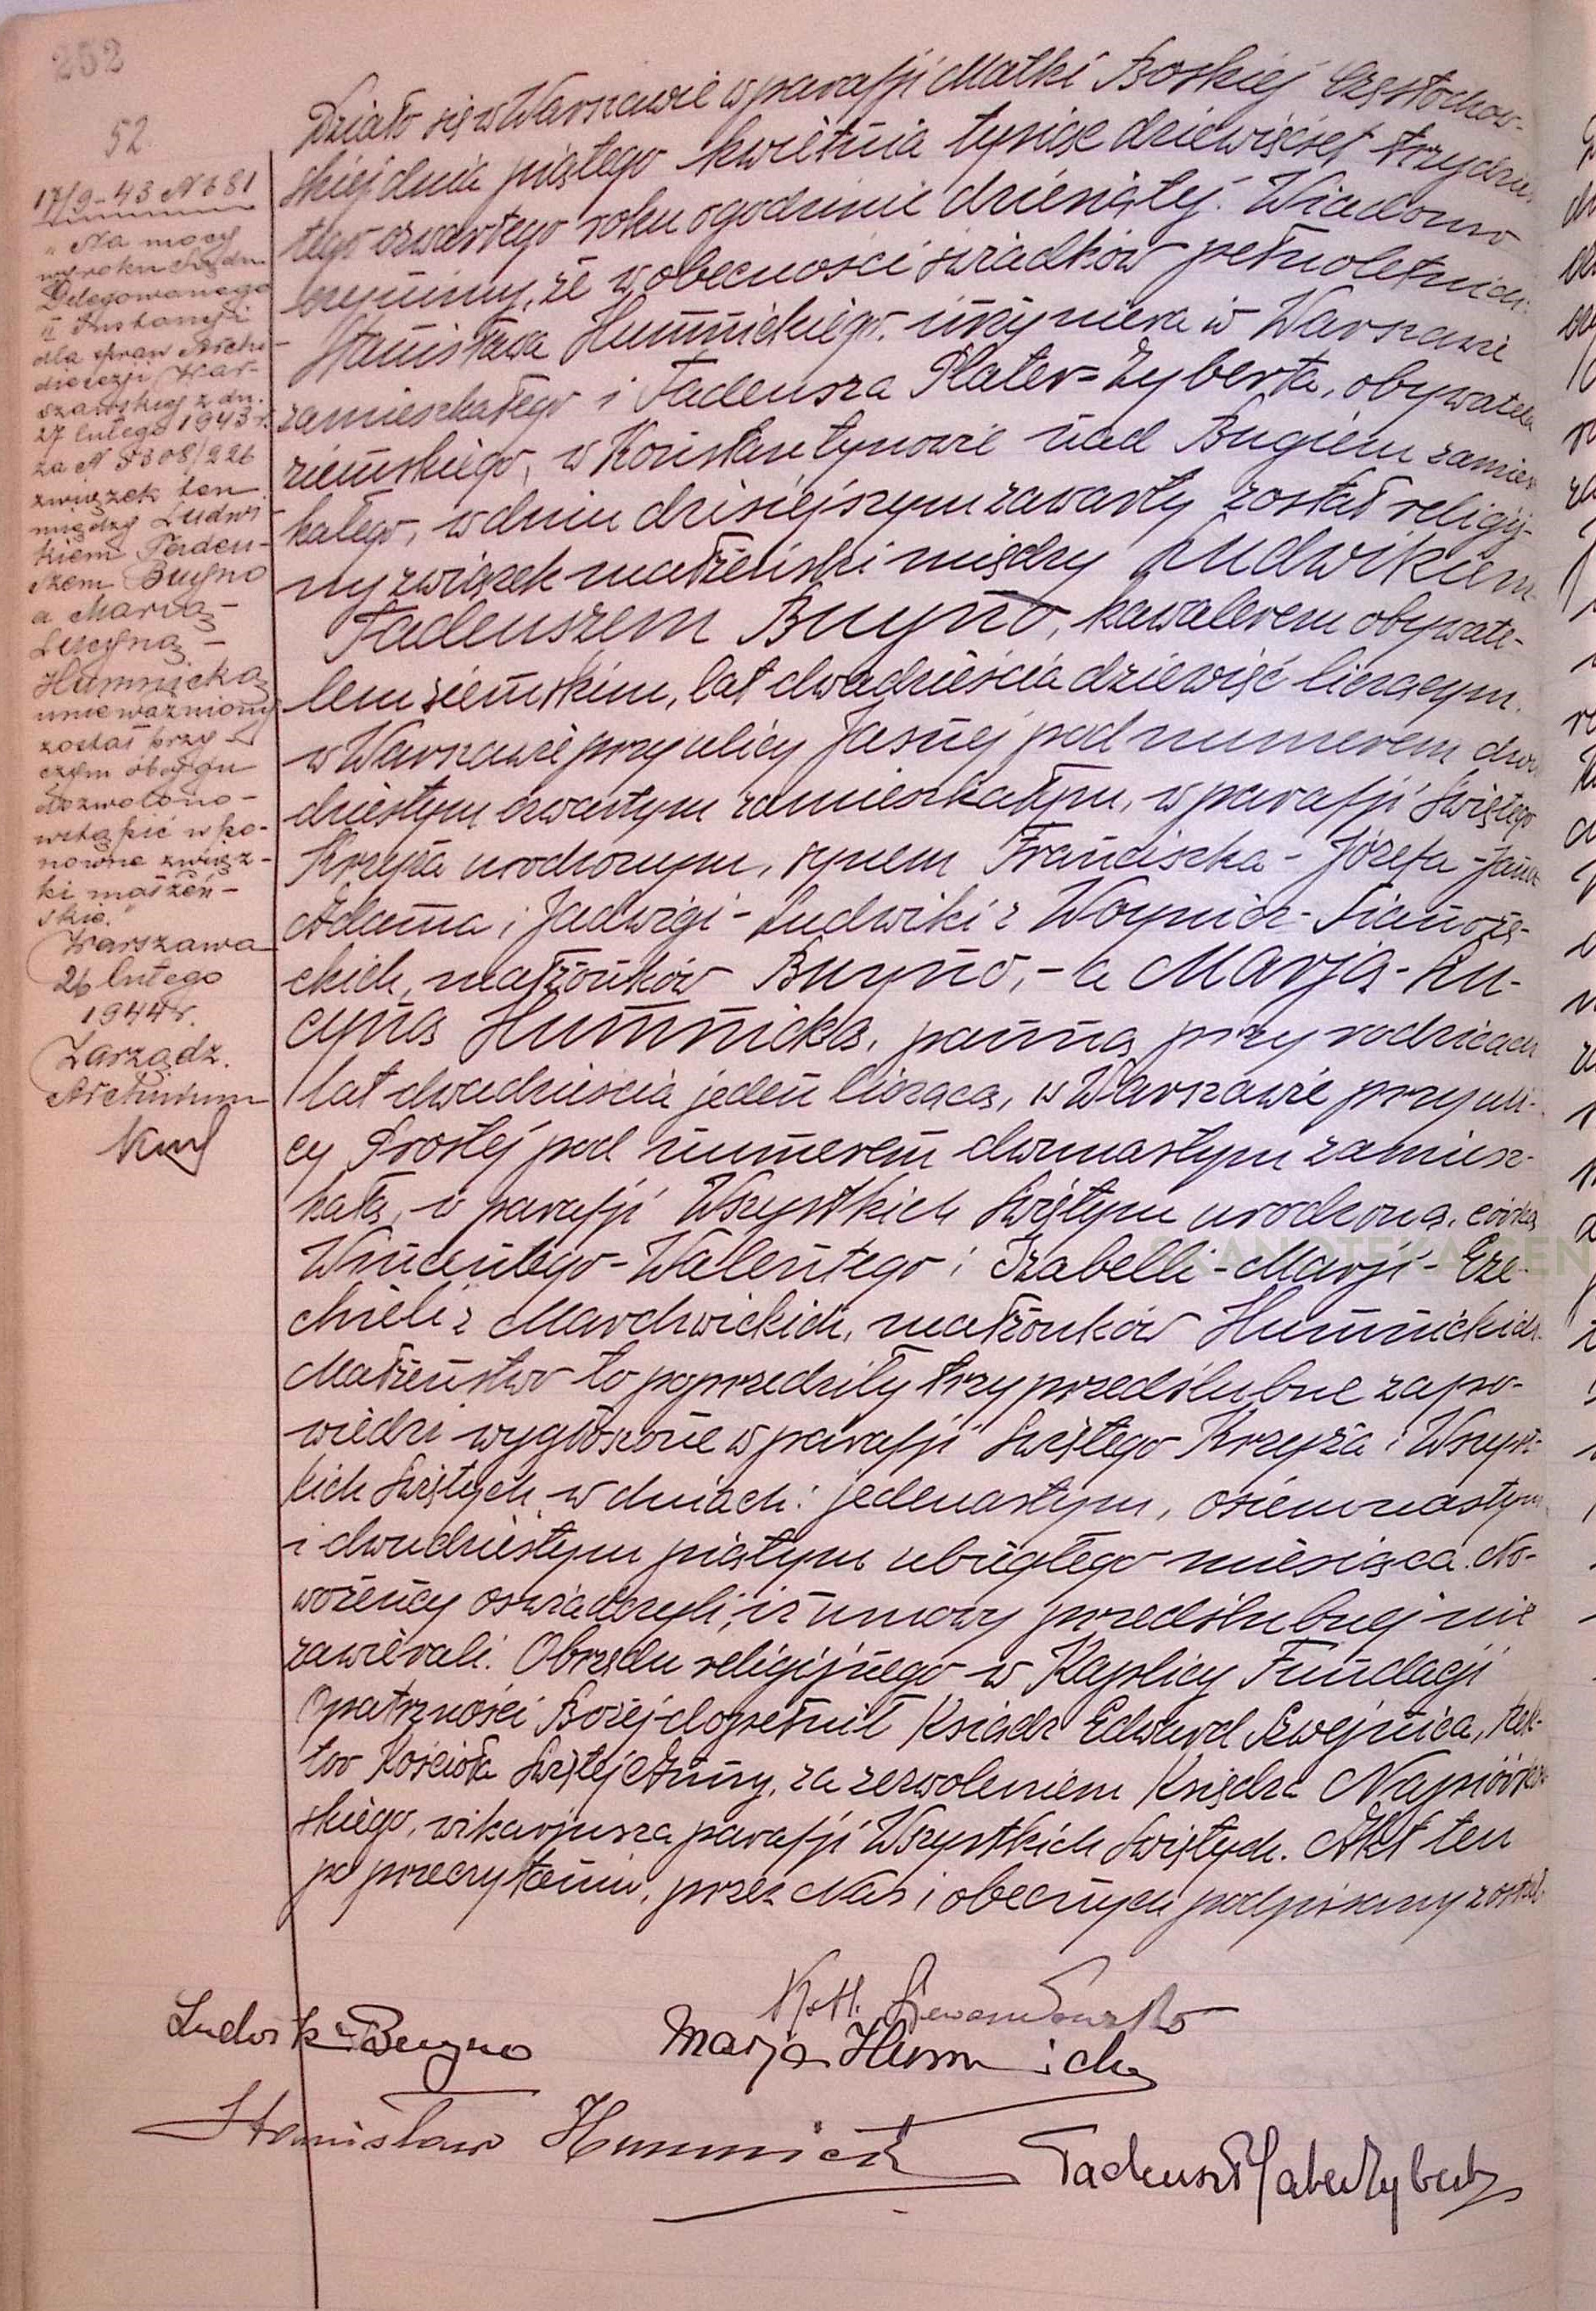 252
52.
17/9-43 N 681
"Na mocy
wyroku Sądu
Delegowanego
II Instancji
dla spraw Archi-
diecezji War-
szawskiej z dn.
27 lutego 1943 r.
za N 8308/226
związek ten
między Ludwi-
kiem Tadeu-
szem Buyno
a Marią-
Lucyną-
Humnicką
unieważniony
został przy-
czym obojgu
dozwolono-
wstąpić w po-
nowne związ-
ki małżeń-
skie."
Warszawa
26 lutego
1944 r.
Zarządz.
Archiwum
Działo się w Warszawie w parafji Matki Boskiej Częstochow-
skiej dnia piątego kwietnia tysiąc dziewięćset trzydzies
tego czwartego roku o godzinie dziesiątej. Wiadomo
czynimy, że w obecności świadków pełnoletnich:
Stanisława Humnickiego, inżyniera w Warszawie
zamieszkałego i Tadeusza Plater-Zyberta, obywatela
ziemskiego, w Konstantynowie nad Bugiem zamiesz
kałego, w dniu dzisiejszym zawarty został religij-
ny związek małżeński między Ludwikiem
Tadeuszem Buyno, kawalerem obywate-
lem ziemskim, lat dwadzieścia dziewięć liczącym,
w Warszawie przy ulicy Jasnej pod numerem dwu
dziestym czwartym zamieszkałym, w parafji Świętego
Krzyża urodzonym, synem Franciszka-Józefa-Jana
Adama i Jadwigi-Ludwiki z Woynicz-Sianożę-
ckich, małżonków Buyno,- a Marją-Lu-
cyną Humnicką, panną przy rodzicach
lat dwadzieścia jeden liczącą, w Warszawie przy uli-
cy Prostej pod numerem dwunastym zamiesz-
kałą, w parafji Wszystkich Świętym urodzoną, córką
Wincentego-Walentego i Izabelli-Marji-Eze-
chieli z Marchwickich, małżonków Humnickich.
Małżeństwo to poprzedziły trzy przedślubne zapo-
wiedzi wygłoszone w parafji Świętego Krzyża i Wszyst-
kich Świętych w dniach: jedenastym, osiemnastym
i dwudziestym piątym ubiegłego miesiąca. No-
wożeńcy oświadczyli, iż umowy przedślubnej nie
zawierali. Obrzędu religijnego w Kaplicy Fundacji
Opatrzności Bożej dopełnił Ksiądz Edward Szwejnica, Rek-
tor Kościoła Świętej Anny, za zezwoleniem Księdza Napiórkow
skiego, wikarjusza parafji Wszystkich Świętych. Akt ten
po przeczytaniu, przez Nas i obecnych podpisany został.
Ludwik Buyno
Marja Humnicka
Stanisław Humnicki
Tadeusz Plater Zyberk